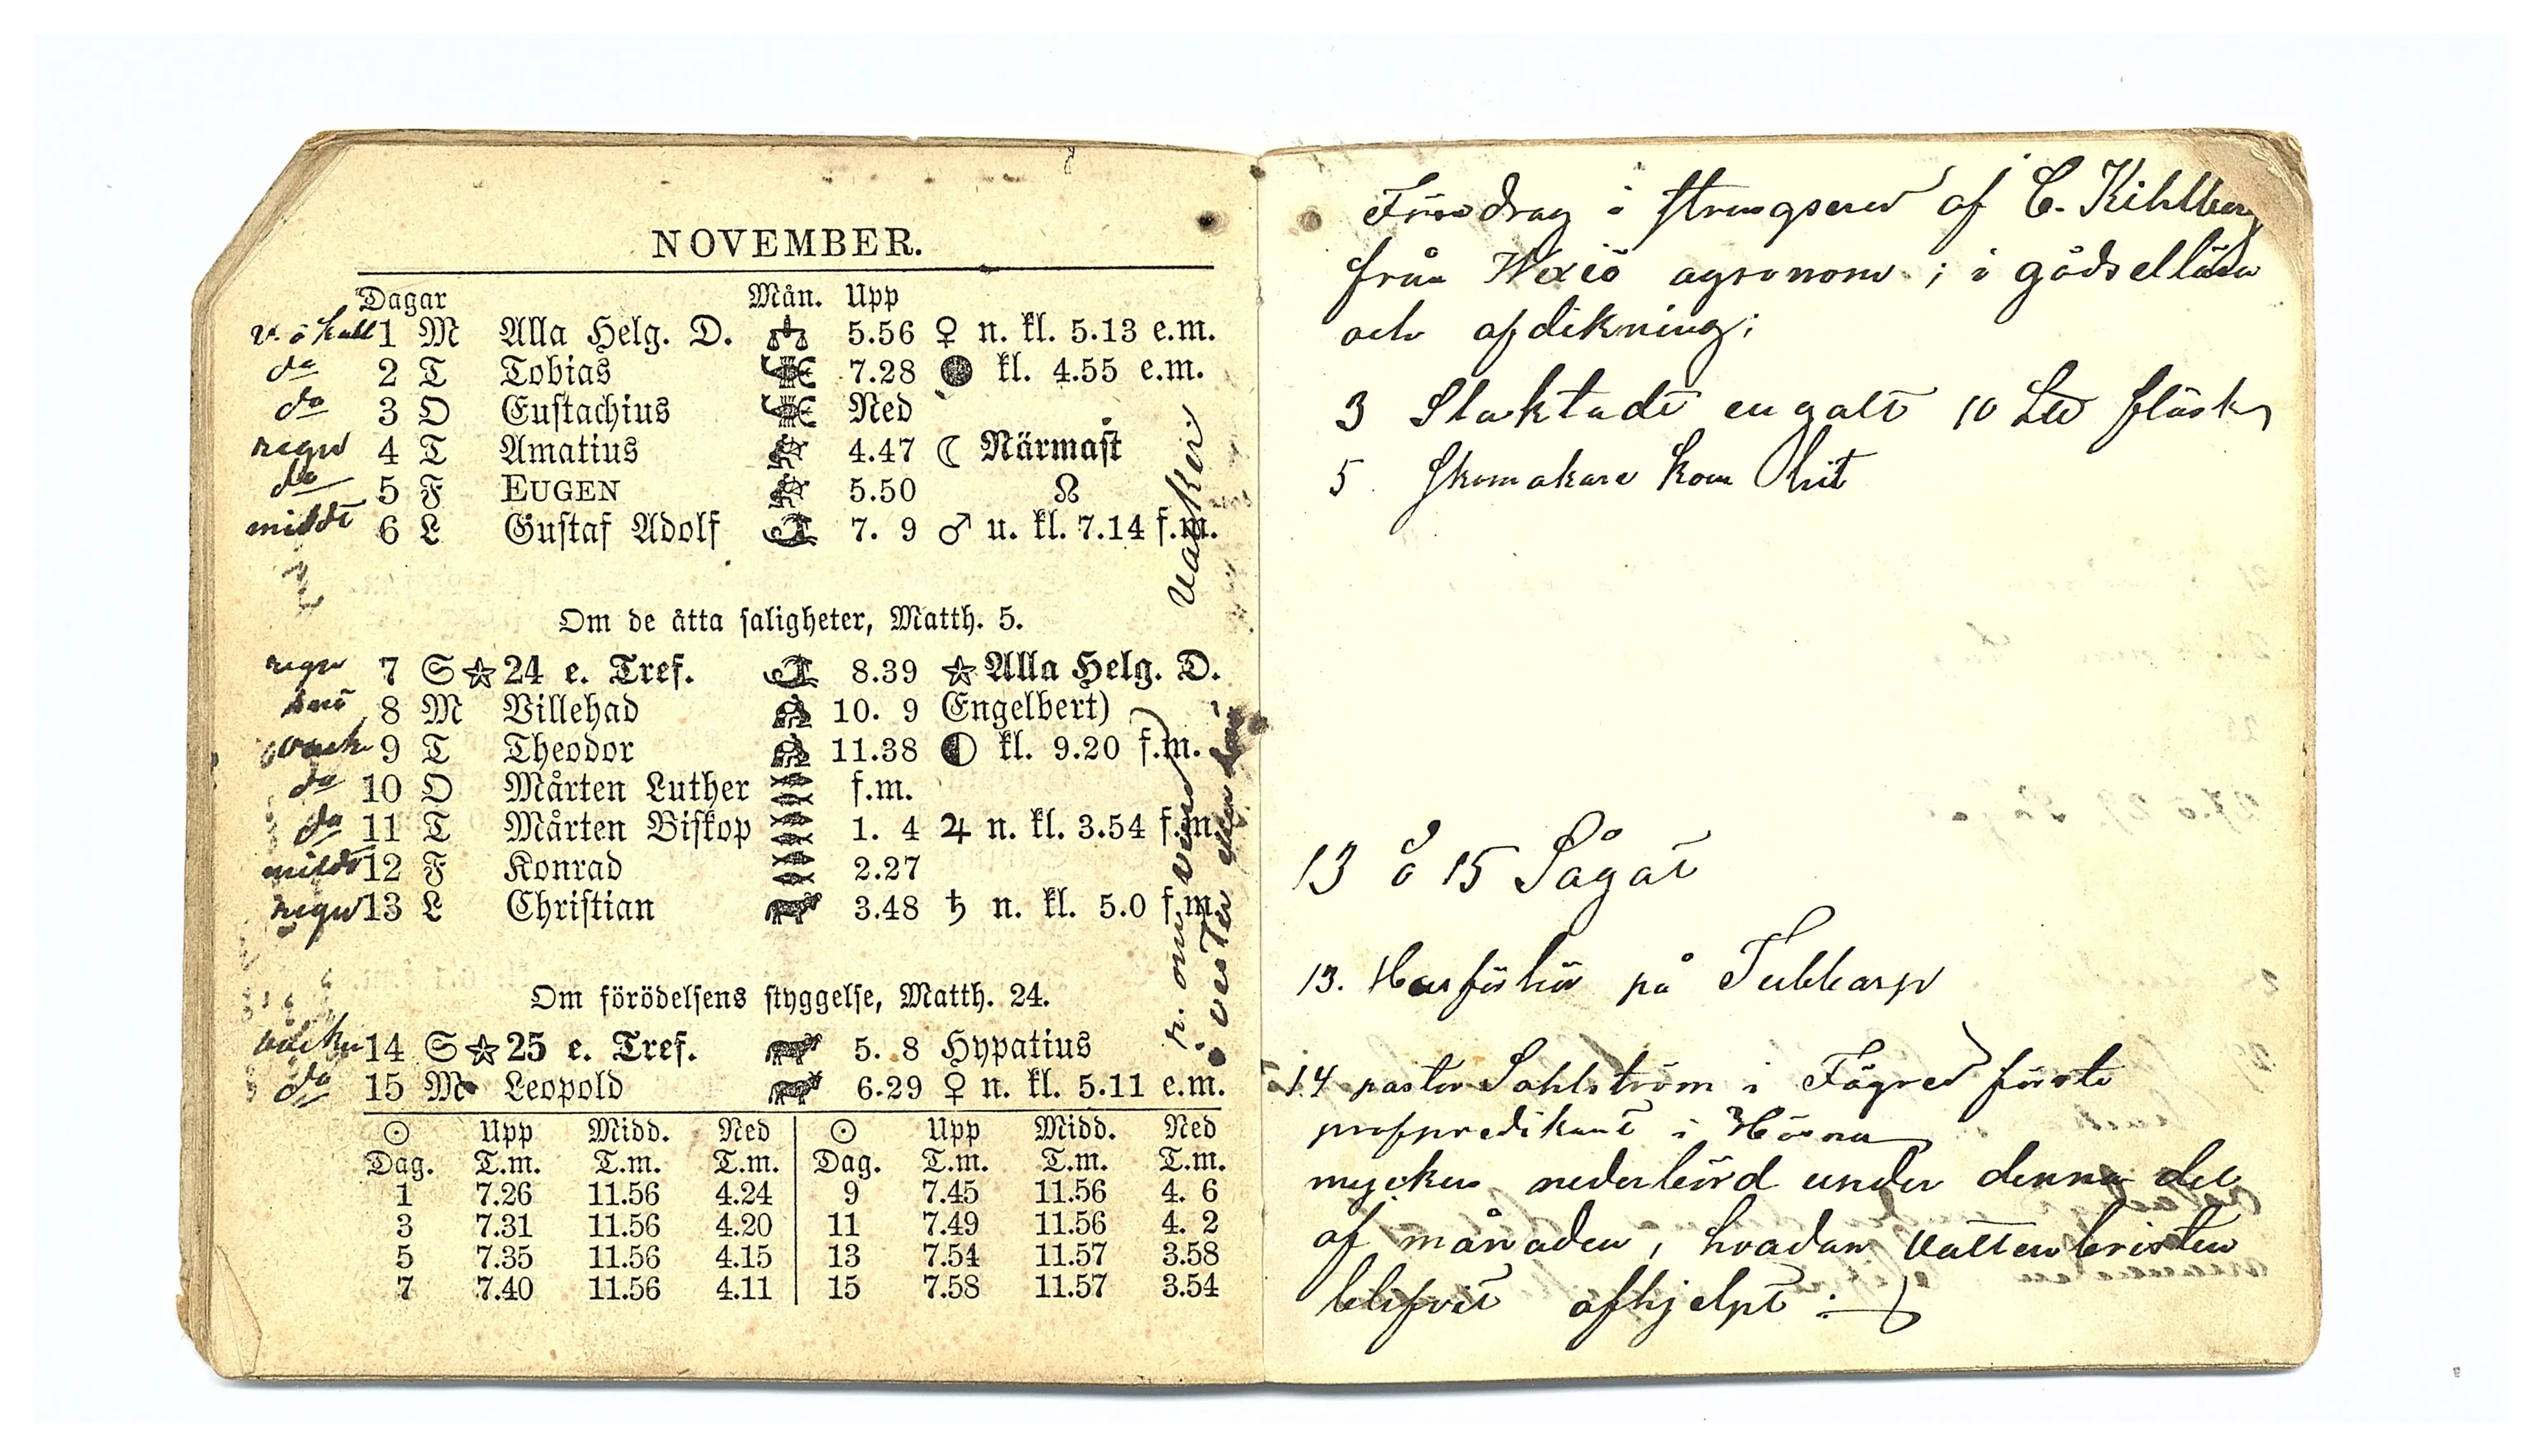 NOVEMBER.
Dagar Mån. Upp
v. ö kall 1 M Alla Helg. D. 5.56 ♀ n. kl. 5.13 e.m.
do 2 T Tobias 7.28 ● kl. 4.55 e.m.
do 3 O Eustachius Ned
regn 4 T Amatius 4.47 ☾ Närmast
do 5 F EUGEN 5.50 ☊
mildt 6 L Gustaf Adolf 7. 9 ♂ u. kl. 7.14 f.m.
vacker
Om de åtta saligheter, Matth. 5.
regn 7 S ☆ 24 e. Tref. 8.39 ☆ Alla Helg. D.
snö 8 M Villehad 10. 9 Engelbert)
vack 9 T Theodor 11.38 ◐ kl. 9.20 f.m.
do 10 O Mårten Luther f.m.
do 11 T Mårten Biskop 1. 4 ♃ n. kl. 3.54 f.m.
mildt 12 F Konrad 2.27
regn 13 L Christian 3.48 ♄ n. kl. 5.0 f.m.
Om förödelsens styggelse, Matth. 24.
vacker 14 S ☆ 25 e. Tref. 5. 8 Hypatius
do 15 M Leopold 6.29 ♀ n. kl. 5.11 e.m.
☉ Upp Midd. Ned ☉ Upp Midd. Ned
Dag. T.m. T.m. T.m. Dag. T.m. T.m. T.m.
1 7.26 11.56 4.24 9 7.45 11.56 4. 6
3 7.31 11.56 4.20 11 7.49 11.56 4. 2
5 7.35 11.56 4.15 13 7.54 11.57 3.58
7 7.40 11.56 4.11 15 7.58 11.57 3.54
Föredrag i Strengsered af C. Kihlberg
från Wexiö agronom; i gödsellära
och afdikning;
3 Slaktade en galt 10 L℔ fläsk
5 Skomakare kom hit
13 o 15 Sågat
13. Husförhör på Tubbarp
14 pastor Sahlström i Fägred förste
profpredikant i Hösna
mycken nederbörd under denna del
af månaden, hvadan vattenbristen
blifvit afhjelpt